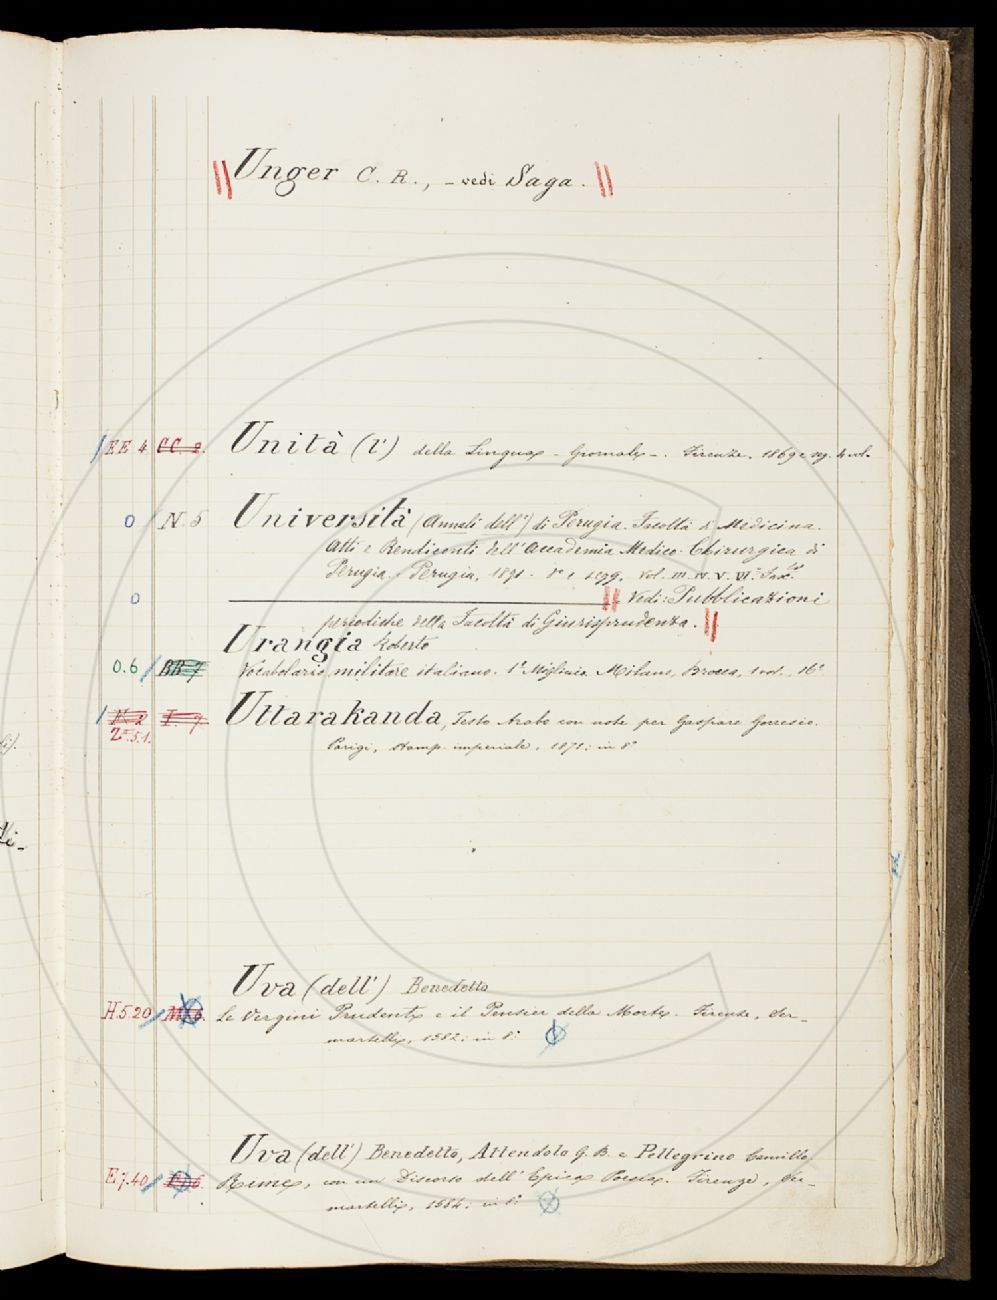 Unger C. R., - vedi Saga.
EE 4. CC. 2. Unità (l') della Lingua - Giornale -. Firenze. 1869 e seg. 4 vol.
0 N. 5 Università (Annali dell') di Perugia. Facoltà di Medicina.
Atti e Rendiconti dell'Accademia Medico-Chirurgica di
Perugia. Perugia, vol. III. IV. V. VI.
0 Vedi: Pubblicazioni
periodiche della Facoltà di Giurisprudenza.
Urangia Roberto
0.6 BB 7 Vocabolario militare italiano. Milano, Brocca, 1 vol., 16°
N. 2 I. 7 Uttarakanda, Testo Arabo con note per Gaspare Gorresio.
Parigi, stamp. imperiale, in 8°
Uva (dell') Benedetto
H 5.20 Le Vergini Prudenti e il Pensier della Morte. Firenze, Ser-
martelli, 1582; in 8°
Uva (dell') Benedetto, Attendolo G. B. e Pellegrino Camillo
E 7.40 Rime, con un Discorso dell'Epica Poesia. Firenze, Ser-
martelli, 1584; in 8°